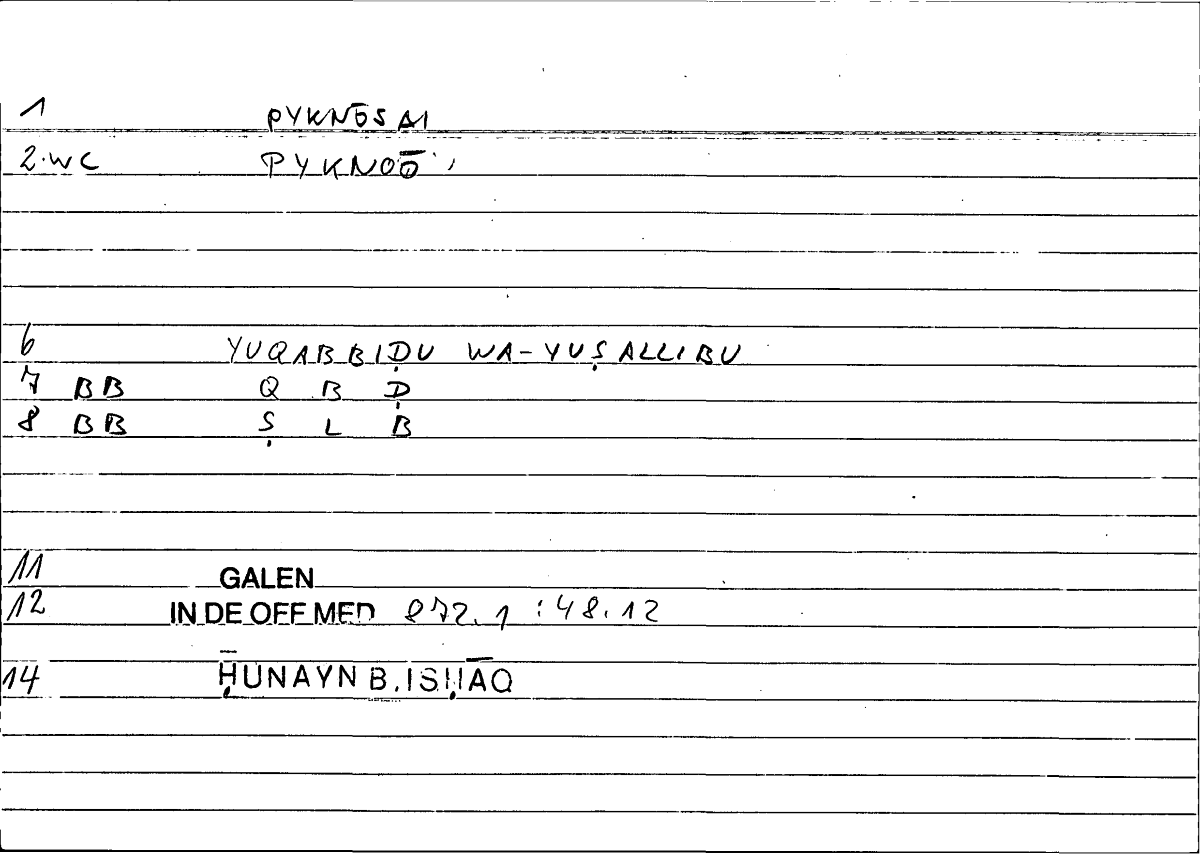 1 PYKNŌSAI
2.WC PYKNOŌ
6 YUQABBIḌU WA-YUṢALLIBU
7 BB Q B Ḍ
8 BB Ṣ L B
11 GALEN
12 IN DE OFF MED 872.1 :48.12
14 ḤUNAYN B.ISḤĀQ